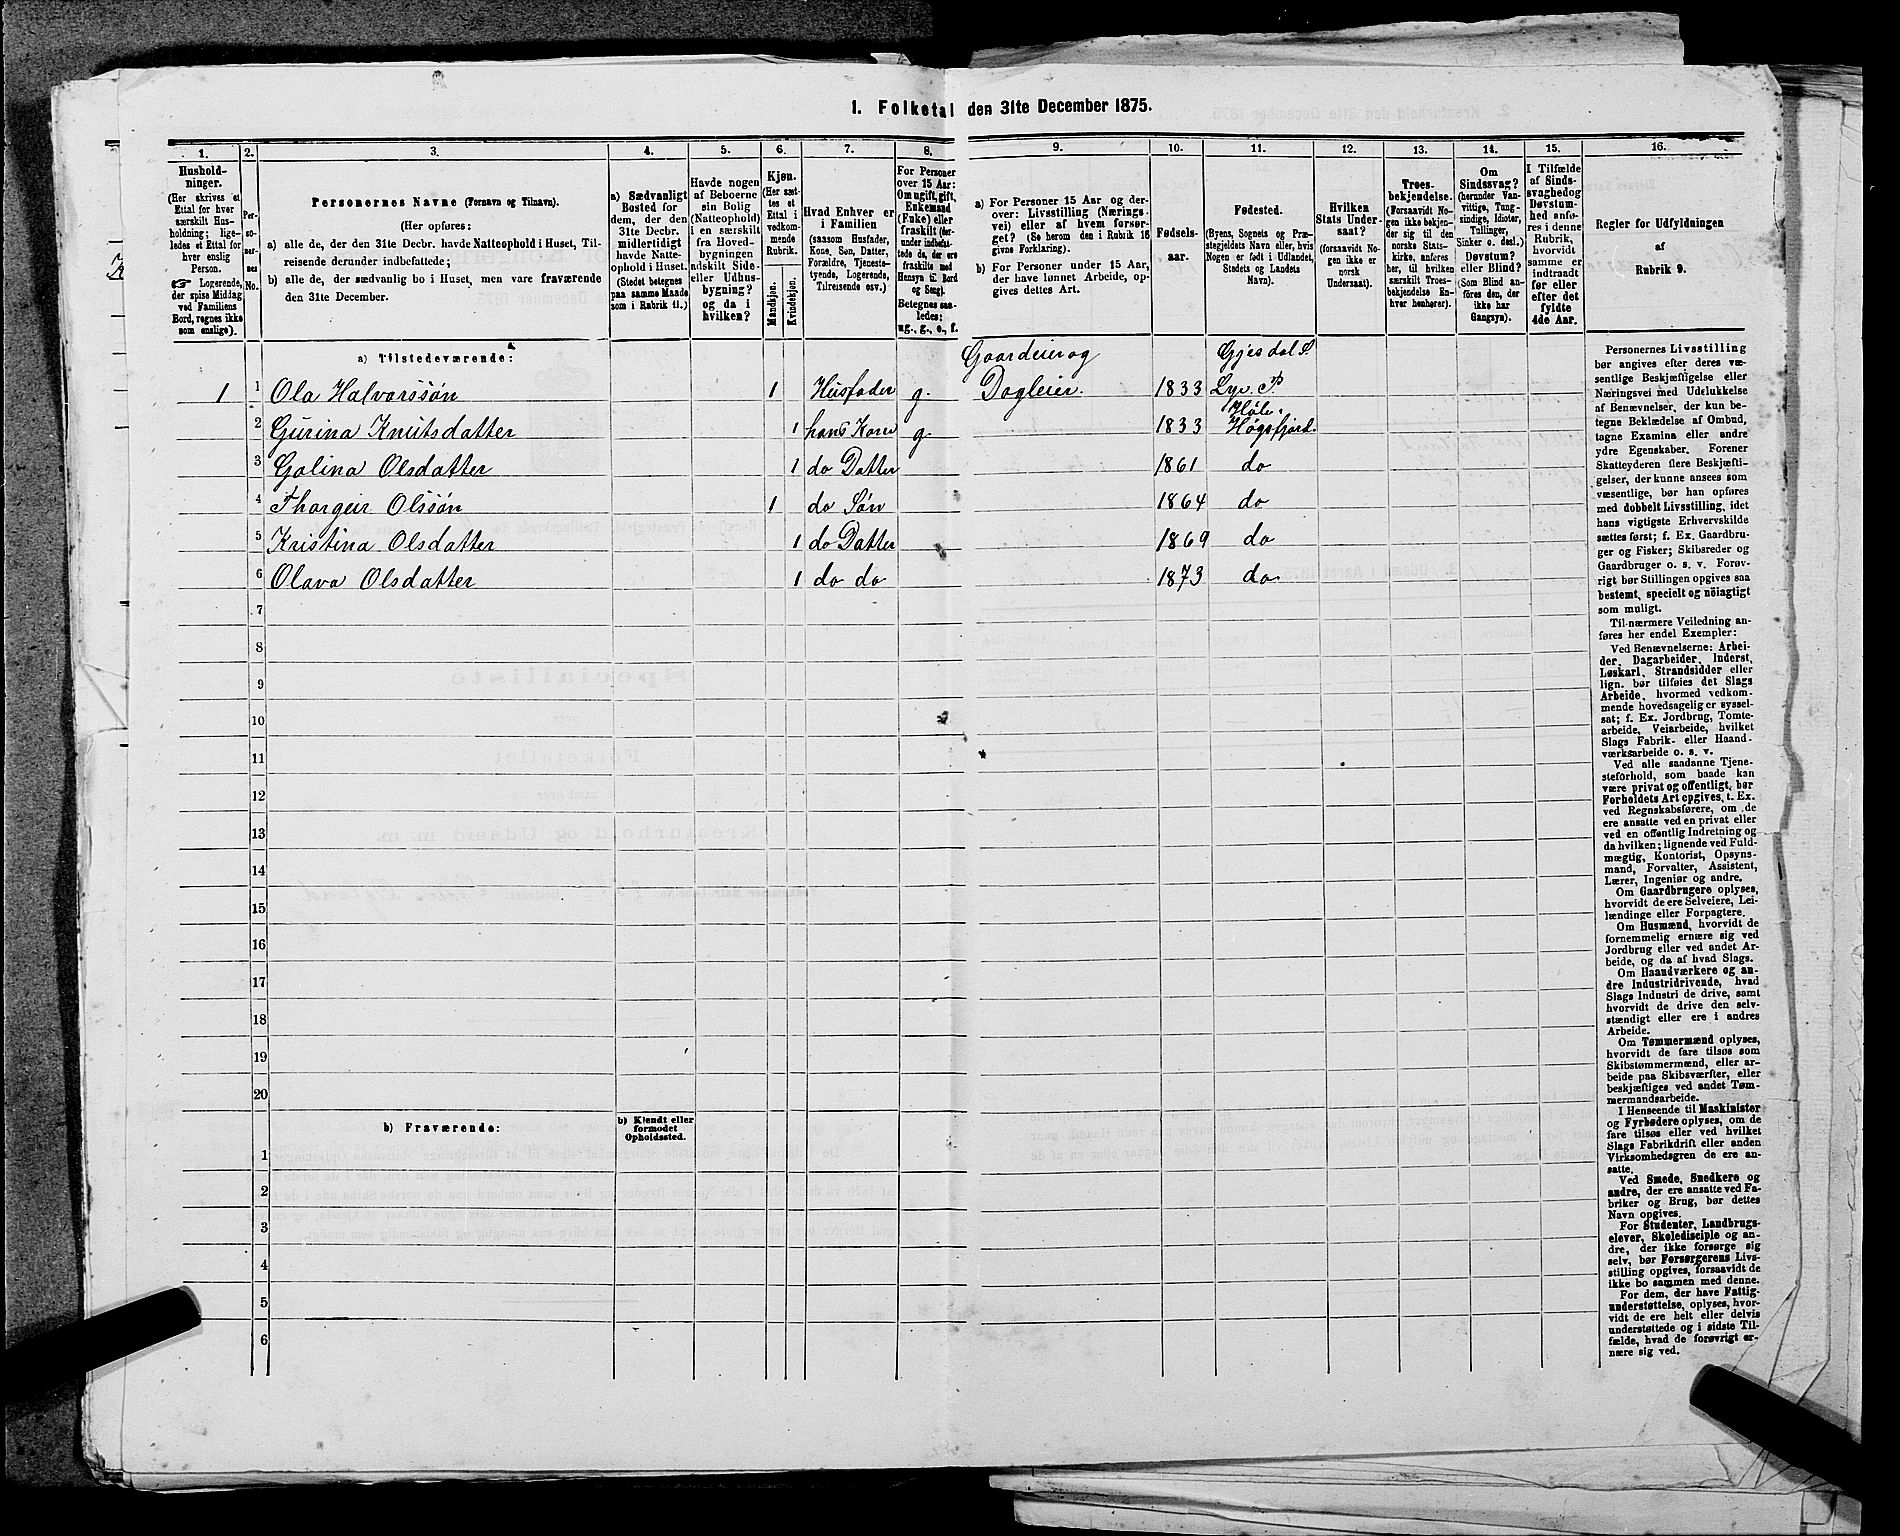 1. Folketal den 31te December 1875.
1.
Hushold-
ninger.
(Her skrives et
Ettal for hver
særskilt Hus-
holdning; lige-
ledes et Ettal for
hver enslig
Person.
☞ Logerende,
der spise Middag
ved Familiens
Bord, regnes ikke
som enslige).
2.
Per-
so-
ner-
nes
No.
3.
Personernes Navne (Fornavn og Tilnavn).
(Her opføres:
a) alle de, der den 31te Decbr. havde Natteophold i Huset, Til-
reisende derunder indbefattede;
b) alle de, der sædvanlig bo i Huset, men vare fraværende
den 31te December.
4.
a) Sædvanligt
Bosted for
dem, der den
31te Decbr.
midlertidigt
havde Natte-
ophold i Huset.
(Stedet betegnes
paa samme Maade
som i Rubrik 11.)
5.
Havde nogen
af Beboerne
sin Bolig
(Natteophold)
i en særskilt
fra Hoved-
bygningen
adskilt Side-
eller Udhus-
bygning?
og da i
hvilken?
6.
Kjøn.
(Her sæt-
tes et
Ettal i
vedkom-
mende
Rubrik.
Mandkjøn.
Kvindekjøn.
7.
Hvad Enhver er
i Familien
(saasom Husfader,
Kone, Søn, Datter,
Forældre, Tjeneste-
tyende, Logerende,
Tilreisende osv.)
8.
For Personer
over 15 Aar:
Om ugift, gift,
Enkemand
(Enke) eller
fraskilt (der-
under indbefat-
tede de, der ere
fraskilte med
Hensyn til Bord
og Seng).
Betegnes saa-
ledes:
ug., g., e., f.
9.
a) For Personer 15 Aar og der-
over: Livsstilling (Nærings-
vei) eller af hvem forsør-
get? (Se herom den i Rubrik 16
givne Forklaring).
b) For Personer under 15 Aar,
der have lønnet Arbeide, op-
gives dettes Art.
10.
Fødsels-
aar.
11.
Fødested.
(Byens, Sognets og Præ-
stegjeldets Navn eller, hvis
Nogen er født i Udlandet,
Stedets og Landets
Navn).
12.
Hvilken
Stats Under-
saat?
(forsaavidt No-
gen ikke er
norsk
Undersaat).
13.
Troes-
bekjendelse.
(Forsaavidt No-
gen ikke bekjen-
der sig til den
norske Stats-
kirke, anføres
her, til hvilken
særskilt Troes-
bekjendelse En-
hver henhører).
14.
Om
Sindssvag?
(herunder Van-
vittige, Tung-
sindige, Idioter,
Tullinger,
Sinker o. desl.)
Døvstum?
eller Blind?
(Som Blind an-
føres den, der
ikke har
Gangsyn).
15.
I Tilfælde
af Sinds-
svaghed og
Døvstum-
hed anfø-
res i denne
Rubrik,
hvorvidt
samme er
indtraadt
før eller
efter det
fyldte
4de Aar.
16.
Regler for Udfyldningen
af
Rubrik 9.
a) Tilstedeværende:
Gaardeier og Gjesdal S.
1 1 Ola Halvorssøn 1 Husfader g. Dagleier. 1833 Lye P.
Høle.
2 Gurina Knutsdatter 1 hans Kone g. 1833 Høgsfjord.
3 Golina Olsdatter 1 do Datter 1861 do
4 Thorgeir Olssøn 1 do Søn 1864 do
5 Kristina Olsdatter 1 do Datter 1869 do
6 Olava Olsdatter 1 do do 1873 do
7
8
9
10
11
12
13
14
15
16
17
18
19
20
b) Fraværende:
b) Kjendt eller
formodet
Opholdssted.
1
2
3
4
5
6
Personernes Livsstilling
bør angives efter deres væ-
sentlige Beskjæftigelse eller
Næringsvei med Udelukkelse
af Benævnelser, der kun be-
tegne Beklædelse af Ombud,
tagne Examina eller andre
ydre Egenskaber. Forener
Skatteyderen flere Beskjæfti-
gelser, der kunne ansees som
væsentlige, bør han opføres
med dobbelt Livsstilling, idet
hans vigtigste Erhvervskilde
sættes først; f. Ex. Gaardbru-
ger og Fisker; Skibsreder og
Gaardbruger o. s. v. Forøv-
rigt bør Stillingen opgives saa
bestemt, specielt og nöiagtigt
som muligt.
Til nærmere Veiledning an-
føres her endel Exempler:
Ved Benævnelserne: Arbei-
der, Dagarbeider, Inderst,
Løskarl, Strandsidder eller
lign. bør tilføies det Slags
Arbeide, hvormed vedkom-
mende hovedsagelig er syssel-
sat; f. Ex. Jordbrug, Tomte-
arbeide, Veiarbeide, hvilket
Slags Fabrik- eller Haand-
værksarbeide o. s. v.
Ved alle saadanne Tjene-
steforhold, som baade kan
være privat og offentligt, bør
Forholdets Art opgives, t. Ex.
ved Regnskabsførere, om de
ere ansatte ved en privat eller
ved en offentlig Indretning og
da hvilken; lignende ved Fuld-
mægtig, Kontorist, Opsyns-
mand, Forvalter, Assistent,
Lærer, Ingeniør og andre.
Om Gaardbrugere oplyses,
hvorvidt de ere Selveiere, Lei-
lændinge eller Forpagtere.
Om Husmænd, hvorvidt de
fornemmelig ernære sig ved
Jordbrug eller ved andet Ar-
beide, og da af hvad Slags.
Om Haandværkere og an-
dre Industridrivende, hvad
Slags Industri de drive, samt
hvorvidt de drive den selv-
stændigt eller ere i andres
Arbeide.
Om Tømmermænd oplyses,
hvorvidt de fare tilsøs som
Skibstømmermænd, eller ar-
beide paa Skibsværfter, eller
beskjæftiges ved andet Tøm-
mermandsarbeide.
I Henseende til Maskinister
og Fyrbødere oplyses, om de
fare tilsøs eller ved hvilket
Slags Fabrikdrift eller anden
Virksomhedsgren de ere an-
satte.
Ved Smede, Snedkere og
andre, der ere ansatte ved Fa-
briker og Brug, bør dettes
Navn opgives.
For Studenter, Landbrugs-
elever, Skoledisciple og an-
dre, der ikke forsørge sig
selv, bør Forsørgerens Livs-
stilling opgives, forsaavidt de
ikke bo sammen med denne.
For dem, der have Fattig-
understøttelse, oplyses, hvor-
vidt de ere helt eller delvis
understøttede og i sidste Til-
fælde, hvad de forøvrigt er-
nære sig ved.